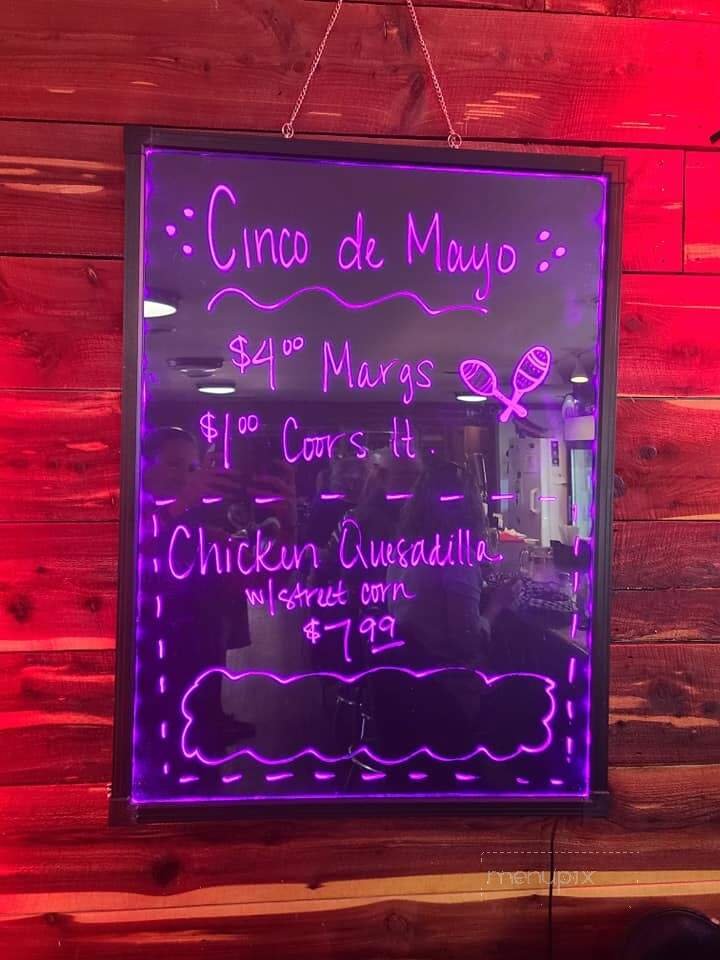 Cinco de Mayo
$4.00 Margs
$1.00 Coors lt.
Chicken Quesadilla
w/street corn
$7.99
menupix